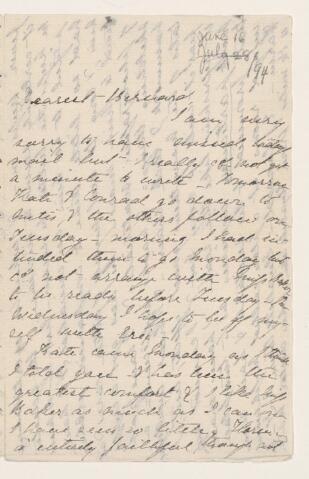 June 16
July 28 /94
Dearest Bernard
I am very
sorry to have missed today's
mail but I really cd not get
a minute to write - Tomorrow
Kate & Conrad go down to
& the others follow on
Tuesday - morning I had in-
tended them to go Monday but
cd not arrange with Miss Baker
to be ready before Tuesday -
Wednesday I hope to be off my-
self with
Kate came Sunday as I think
I told you & has been the
greatest comfort & I like Miss
Baker as much as I can for
I have seen so little of
is entirely faithful though not